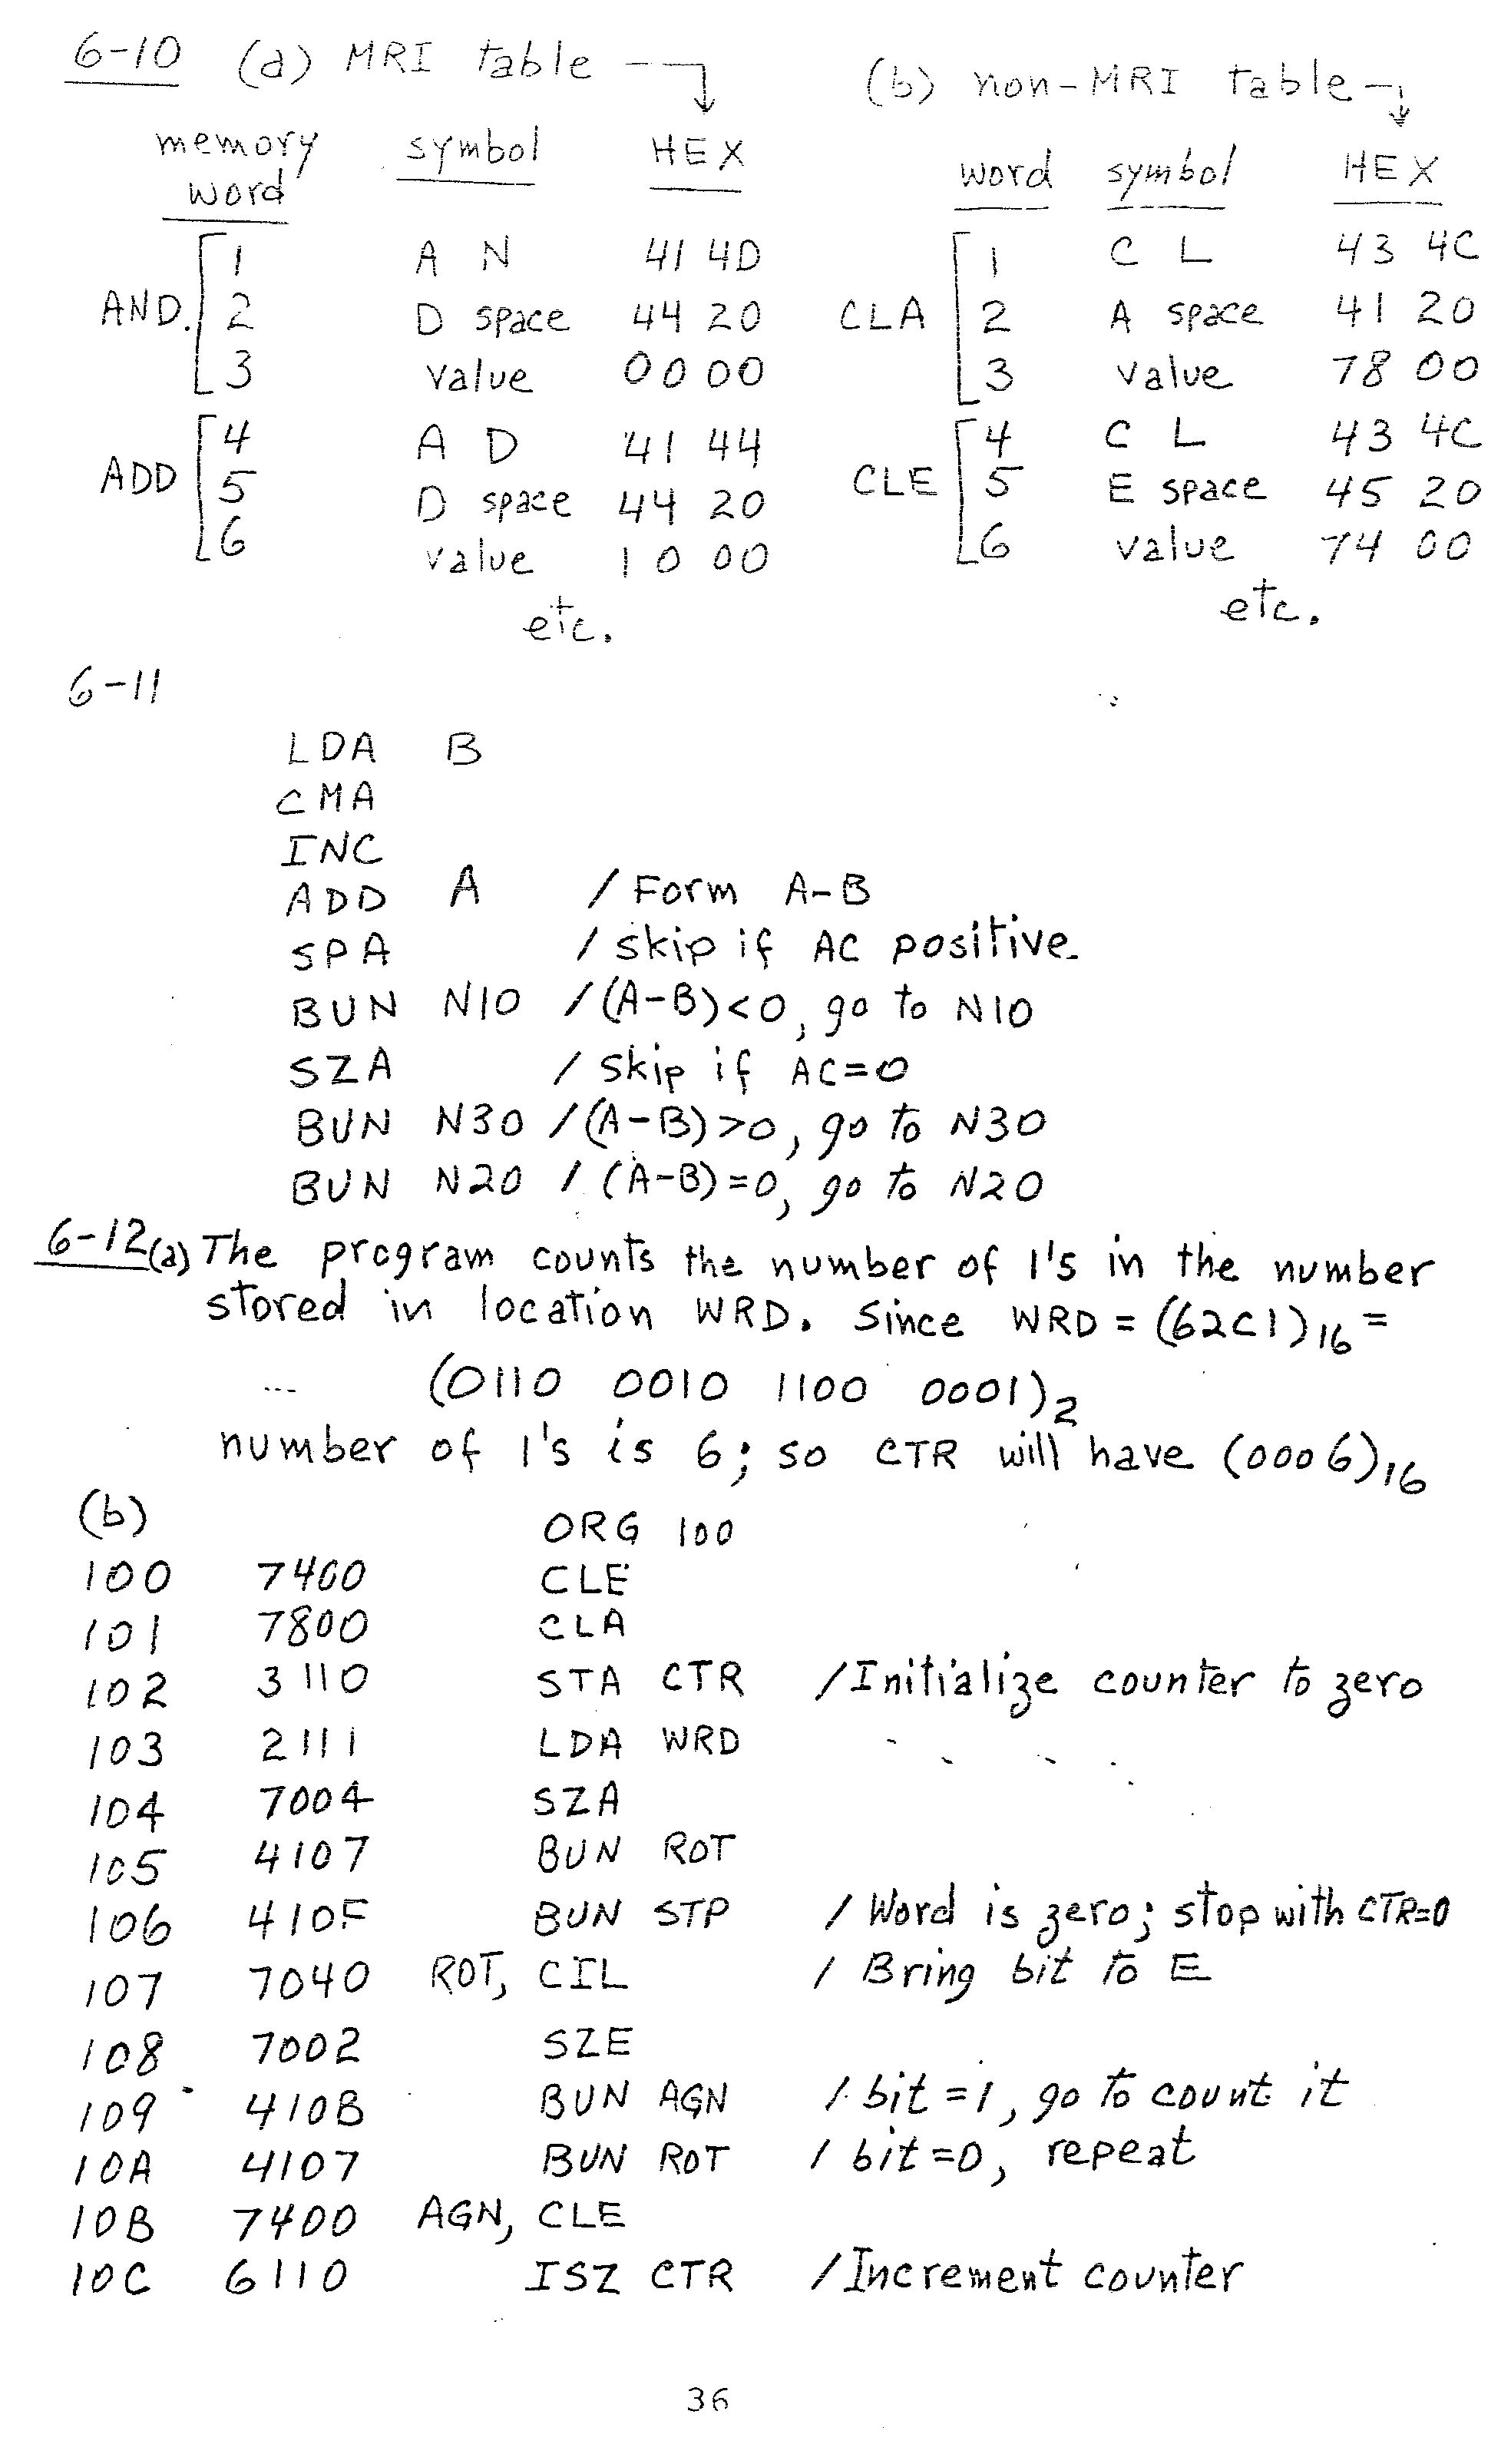 6-10 (a) MRI table
memory word symbol HEX
AND. 1 A N 41 4D
2 D space 44 20
3 value 00 00
ADD 4 A D 41 44
5 D space 44 20
6 value 10 00
etc.
(b) non-MRI table
word symbol HEX
CLA 1 C L 43 4C
2 A space 41 20
3 value 78 00
CLE 4 C L 43 4C
5 E space 45 20
6 value 74 00
etc.
6-11
LDA B
CMA
INC
ADD A / Form A-B
SPA / skip if AC positive
BUN N10 / (A-B)<0, go to N10
SZA / skip if AC=0
BUN N30 / (A-B)>0, go to N30
BUN N20 / (A-B)=0, go to N20
6-12 (a) The program counts the number of 1's in the number
stored in location WRD. Since WRD = (62C1)16 =
(0110 0010 1100 0001)2
number of 1's is 6; so CTR will have (0006)16
(b) ORG 100
100 7400 CLE
101 7800 CLA
102 3110 STA CTR /Initialize counter to zero
103 2111 LDA WRD
104 7004 SZA
105 4107 BUN ROT
106 410F BUN STP / Word is zero; stop with CTR=0
107 7040 ROT, CIL / Bring bit to E
108 7002 SZE
109 410B BUN AGN / bit =1, go to count it
10A 4107 BUN ROT / bit =0, repeat
10B 7400 AGN, CLE
10C 6110 ISZ CTR /Increment counter
36